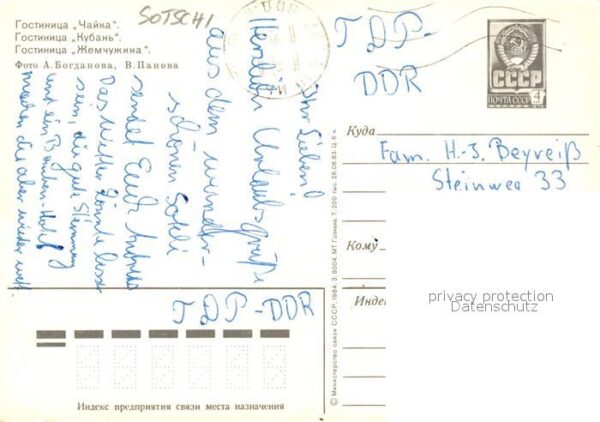 Гостиница „Чайка".
Гостиница „Кубань".
Гостиница „Жемчужина".
Фото А. Богданова, В. Панова
SOTSCHI
Ihr Lieben!
Herzlich Urlaubsgrüße
aus dem wunder-
schönen Sotschi
sendet Euch
Das Wetter könnte besser
sein, die gute Stimmung
und ein Bomben-Hotel
machen die aber wieder wett.
ГДР-
DDR
СССР
ПОЧТА СССР
4
Куда
Fam. H.-J. Beyreiß
Steinweg 33
Кому
Индекс
privacy protection
Datenschutz
ГДР-DDR
© Министерство связи СССР, 1984. З. 8004. МТ Гознака. Т. 200 тыс. 26.08.83. Ц. 6 к.
Индекс предприятия связи места назначения